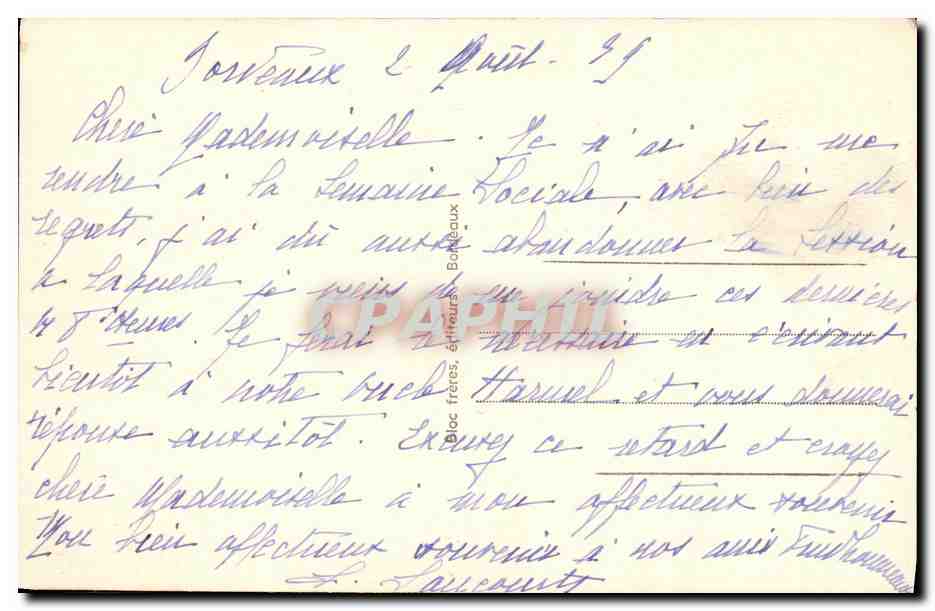 Bordeaux 2 Août - 39
Chère Mademoiselle. Je n'ai pu me
rendre à la Semaine Sociale, avec bien des
regrets, j'ai dû aussi abandonner la Session
à laquelle je viens de me joindre ces dernières
48 Heures. Je ferai le nécessaire en écrivant
bientôt à notre oncle Harmel et vous donnerai
réponse aussitôt. Excusez ce retard et croyez
chère Mademoiselle à mon affectueux souvenir
Mon bien affectueux souvenir à nos amis
Bloc frères, éditeurs - Bordeaux
CPAPHIL